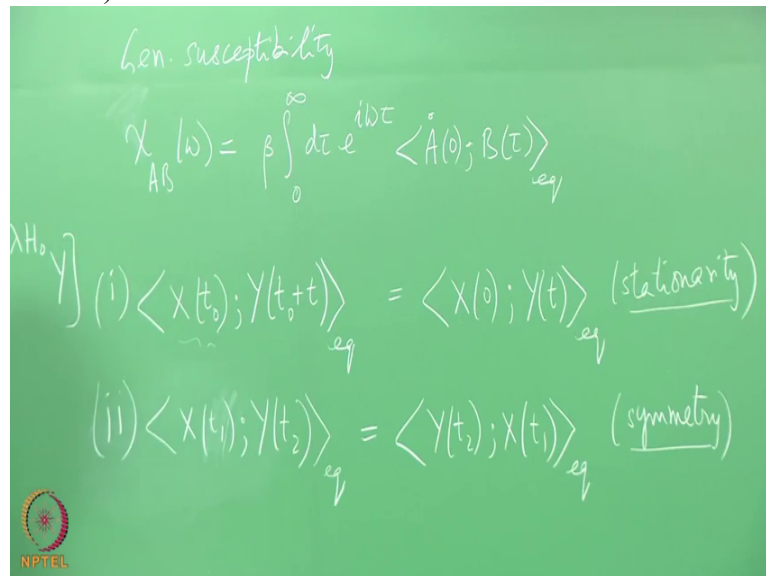 Gen. susceptibility
χ_AB(ω) = β ∫_0^∞ dτ e^{iωτ} <Ȧ(0); B(τ)>_eq
λH₀ Y] (i) <X(t₀); Y(t₀+t)>_eq = <X(0); Y(t)>_eq (stationarity)
(ii) <X(t₁); Y(t₂)>_eq = <Y(t₂); X(t₁)>_eq (symmetry)
NPTEL